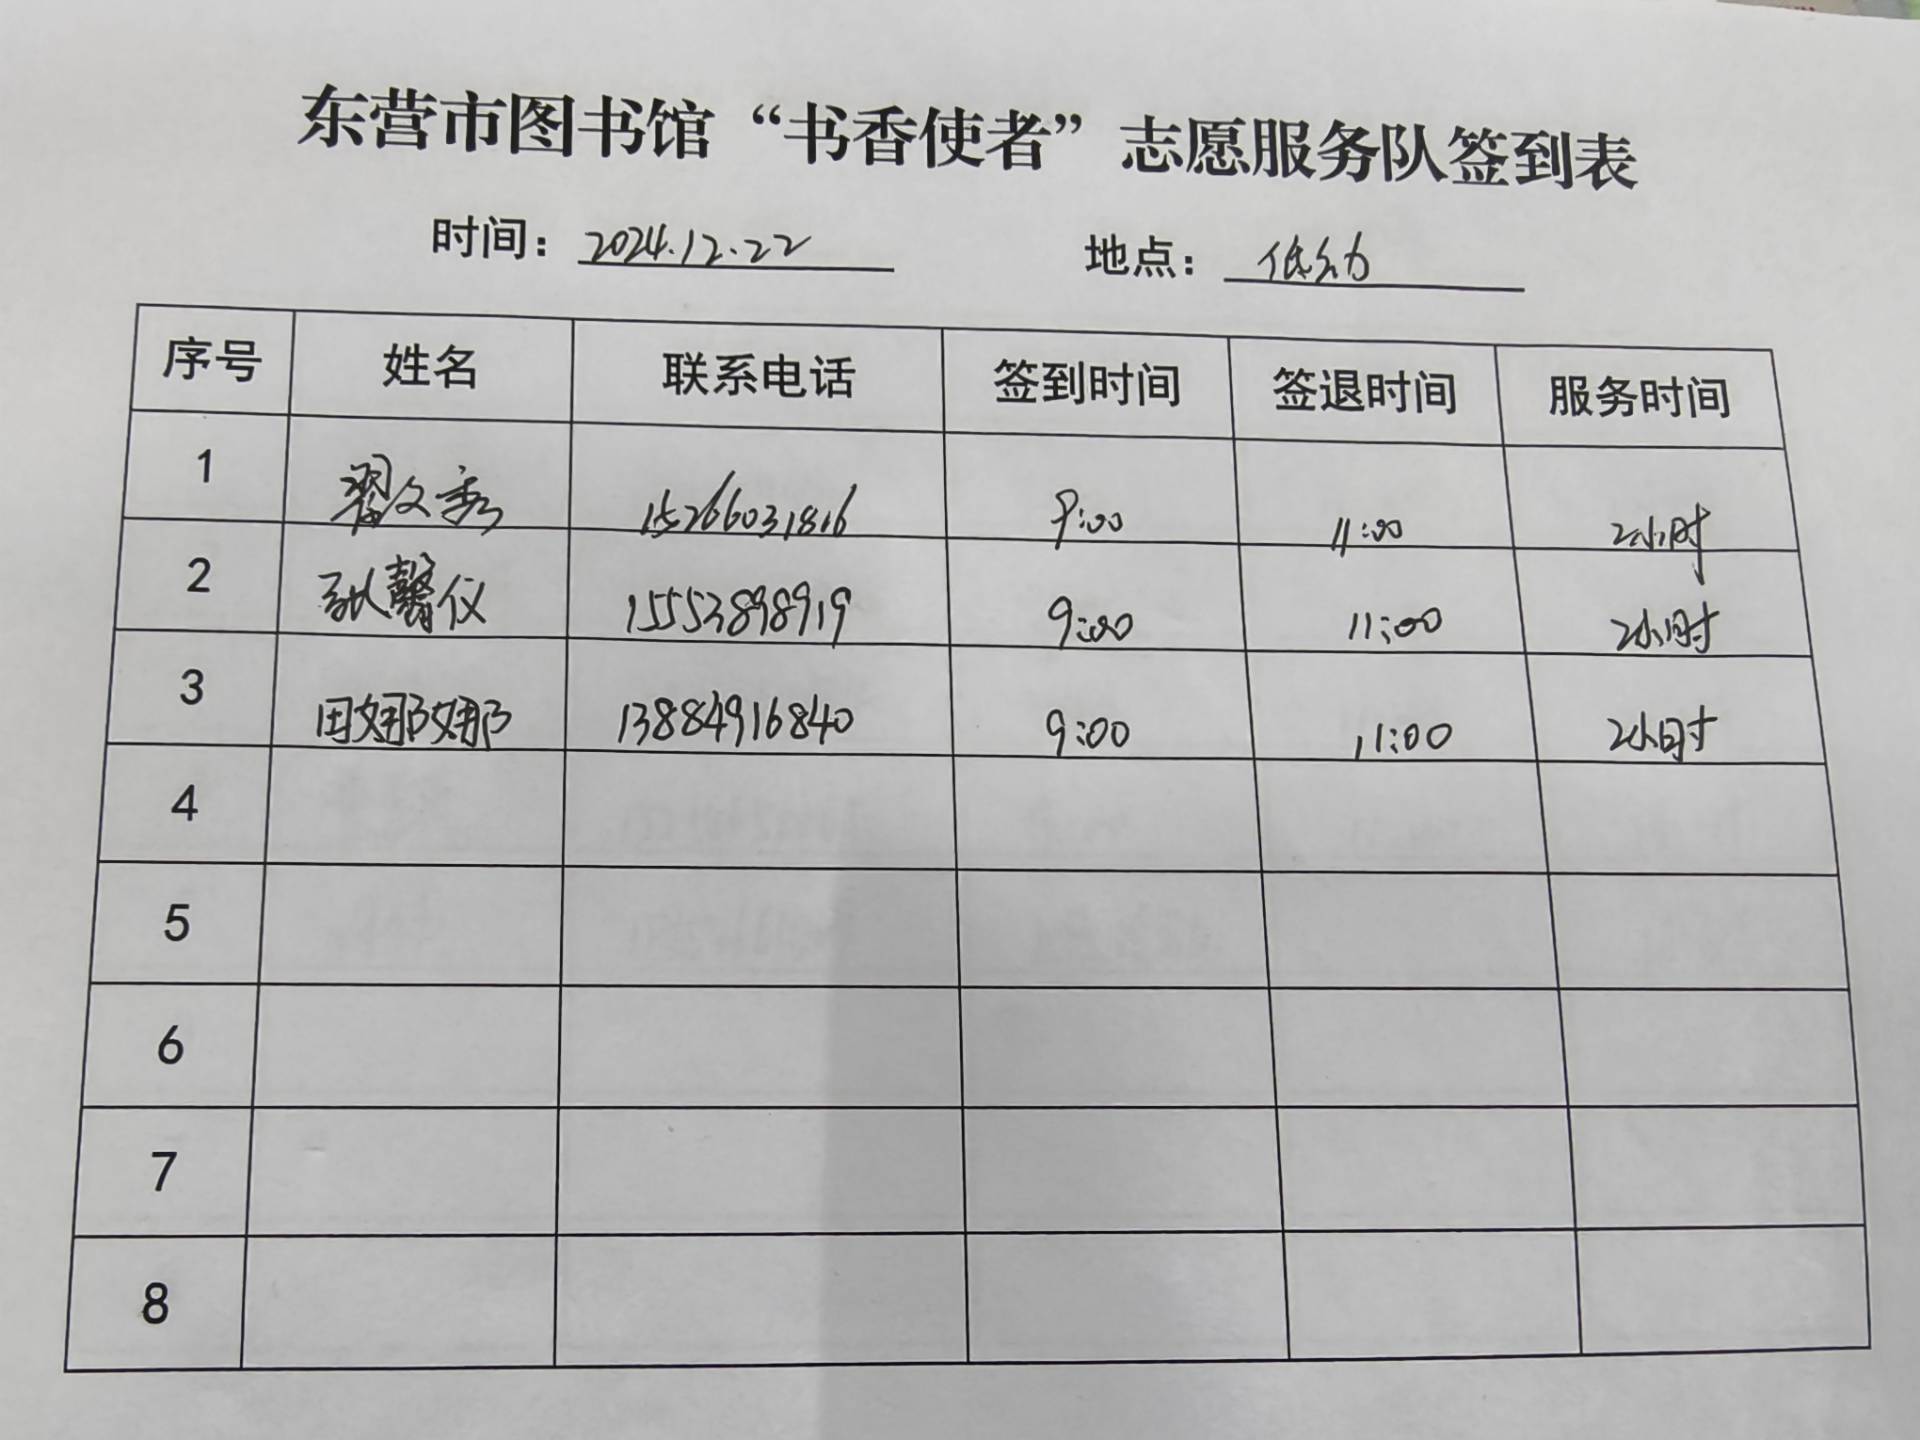 东营市图书馆“书香使者”志愿服务队签到表
时间：2024.12.22 地点：低幼
序号 姓名 联系电话 签到时间 签退时间 服务时间
1 翟文秀 15266031816 9:00 11:00 2小时
2 馨仪 15553898919 9:00 11:00 2小时
3 田娜娜 13884916840 9:00 11:00 2小时
4
5
6
7
8